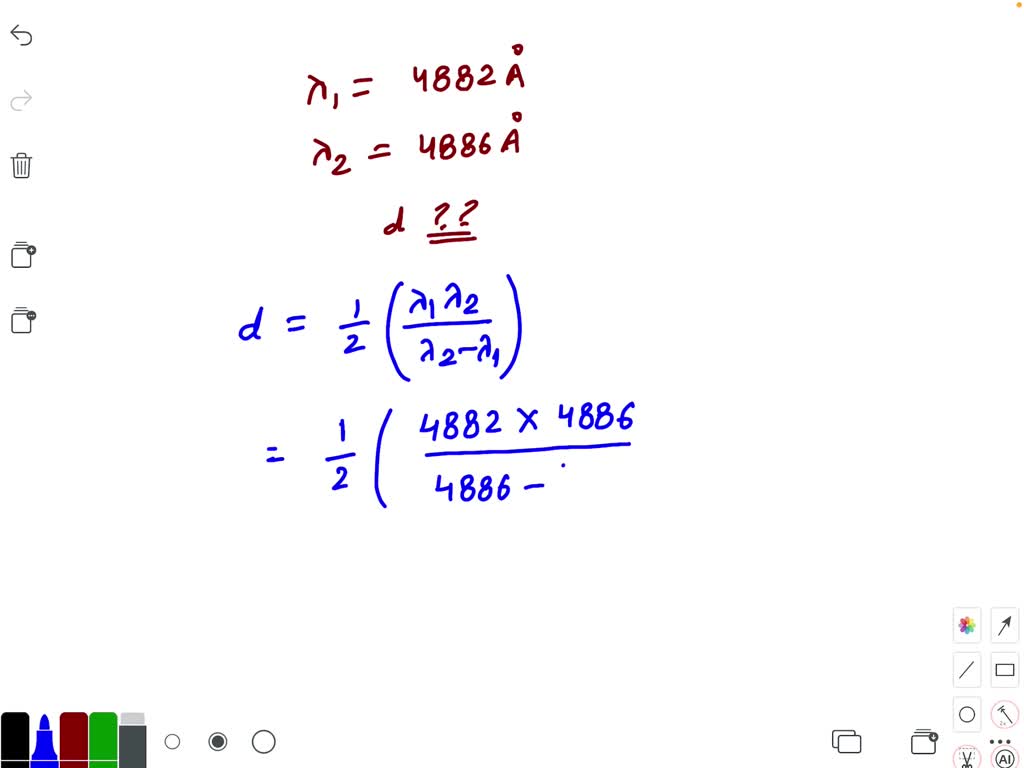 λ₁ = 4882 Å
λ₂ = 4886 Å
d ??
d = 1/2 (λ₁ λ₂ / λ₂ − λ₁)
= 1/2 ( 4882 × 4886 / 4886 −
2x
AI